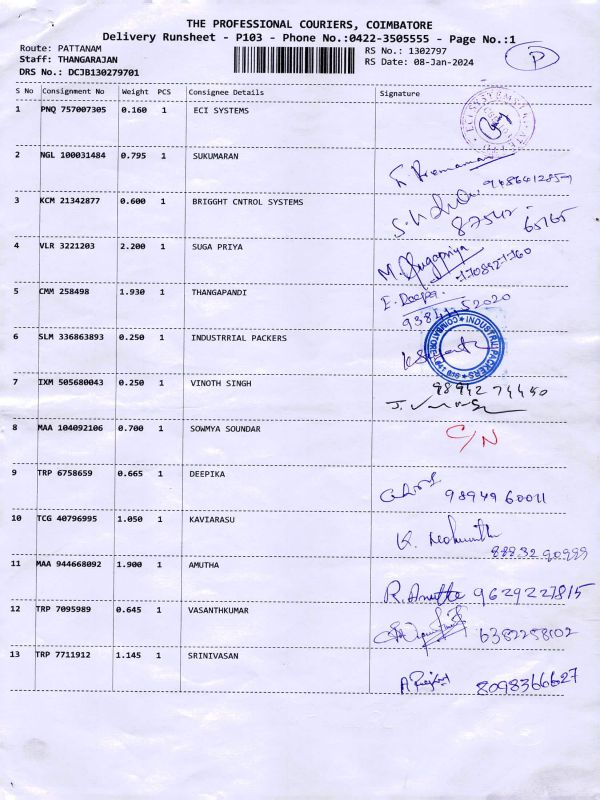 THE PROFESSIONAL COURIERS, COIMBATORE
Delivery Runsheet - P103 - Phone No.:0422-3505555 - Page No.:1
Route: PATTANAM RS No.: 1302797
Staff: THANGARAJAN RS Date: 08-Jan-2024
DRS No.: DCJB130279701
P
S No Consignment No Weight PCS Consignee Details Signature
1 PNQ 757007305 0.160 1 ECI SYSTEMS
2 NGL 100031484 0.795 1 SUKUMARAN
3 KCM 21342877 0.600 1 BRIGGHT CNTROL SYSTEMS
87542 65765
4 VLR 3221203 2.200 1 SUGA PRIYA
M. Sugapriya
5 CMM 258498 1.930 1 THANGAPANDI
E. Deepa
6 SLM 336863893 0.250 1 INDUSTRRIAL PACKERS
7 IXM 505680043 0.250 1 VINOTH SINGH
98942 74450
8 MAA 104092106 0.700 1 SOWMYA SOUNDAR
C/N
9 TRP 6758659 0.665 1 DEEPIKA
98949 60011
10 TCG 40796995 1.050 1 KAVIARASU
88832 90999
11 MAA 944668092 1.900 1 AMUTHA
R. Amutha 9629227815
12 TRP 7095989 0.645 1 VASANTHKUMAR
6382258102
13 TRP 7711912 1.145 1 SRINIVASAN
8098366627